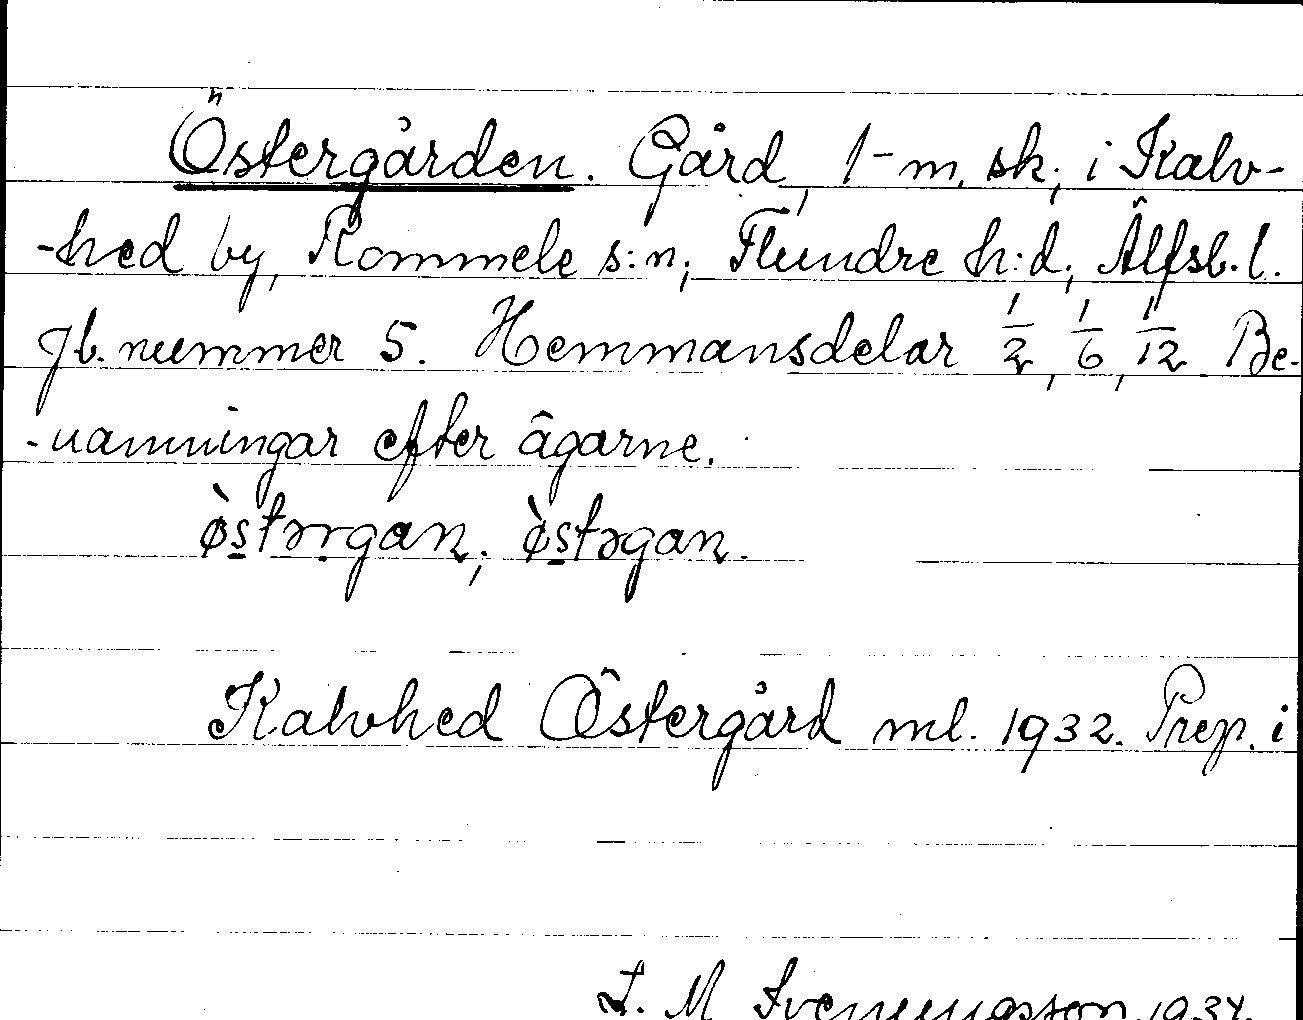 Östergården. Gård, 1-m. sk; i Kalv-
-hed by, Rommele s:n; Flundre h:d; Älfsb. l.
Jb. nummer 5. Hemmansdelar 1/2, 1/6, 1/12. Be-
-namningar efter ägarne.
ø̀stərgan; ø̀stəgan.
Kalvhed Östergård ml. 1932. Prep. i
J. M Svenningsson 1934.